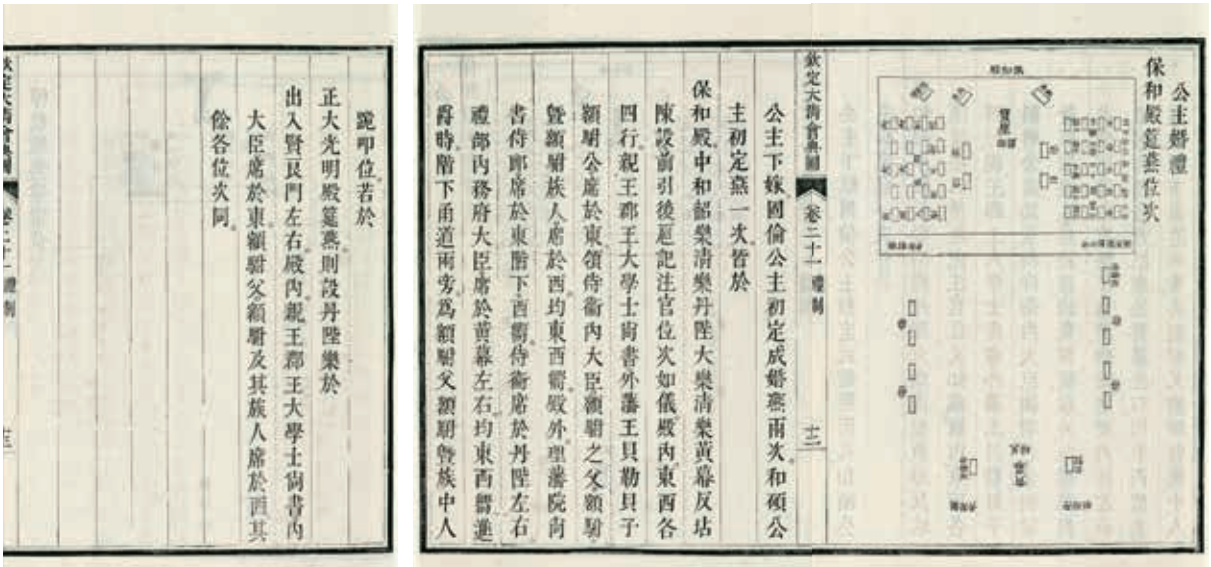 公主婚禮
保和殿筵燕位次
欽定大清會典圖
卷二十一 禮制
十二
公主下嫁固倫公主初定成婚燕兩次和碩公
主初定燕一次皆於
保和殿中和韶樂清樂丹陛大樂清樂黃幕反坫
陳設前引後扈記注官位次如儀殿內東西各
四行親王郡王大學士尚書外藩王貝勒貝子
額駙公席於東領侍衛內大臣額駙之父額駙
暨額駙族人席於西均東西嚮殿外理藩院尚
書侍郎席於東階下西嚮侍衛席於丹陛左右
禮部內務府大臣席於黃幕左右均東西嚮進
爵時階下甬道兩旁爲額駙父額駙暨族中人
跪叩位若於
正大光明殿筵燕則設丹陛樂於
出入賢良門左右殿內親王郡王大學士尚書內
大臣席於東額駙父額駙及其族人席於西其
餘各位次同
欽定大清會典圖
卷二十一 禮制
十三